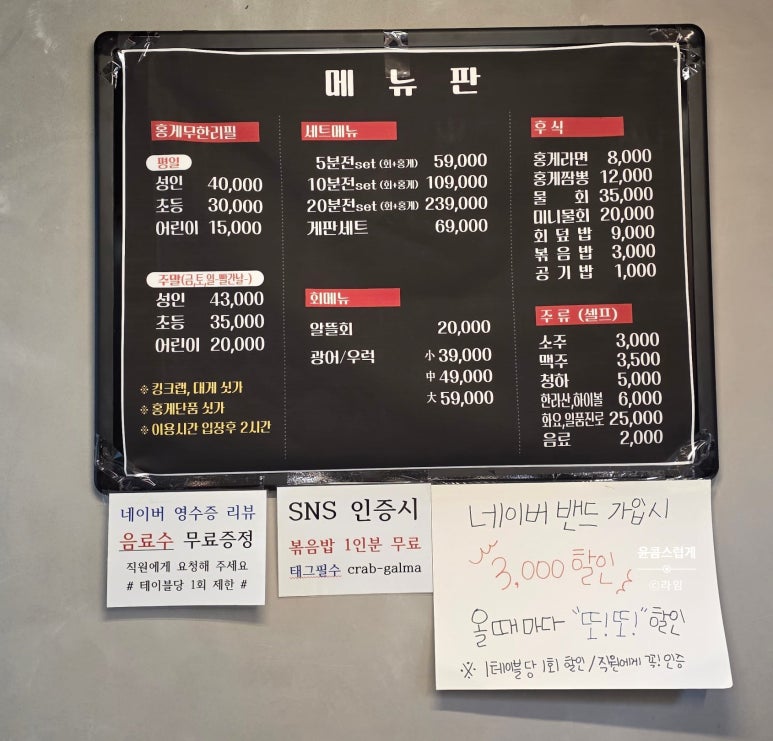 메뉴판
홍게무한리필
평일
성인 40,000
초등 30,000
어린이 15,000
주말(금,토,일-빨간날-)
성인 43,000
초등 35,000
어린이 20,000
※ 킹크랩, 대게 싯가
※ 홍게단품 싯가
※ 이용시간 입장후 2시간
세트메뉴
5분전set (회+홍게) 59,000
10분전set (회+홍게) 109,000
20분전set (회+홍게) 239,000
게판세트 69,000
회메뉴
알뜰회 20,000
광어/우럭 小 39,000
中 49,000
大 59,000
후식
홍게라면 8,000
홍게짬뽕 12,000
물 회 35,000
미니물회 20,000
회덮밥 9,000
볶음밥 3,000
공기밥 1,000
주류 (셀프)
소주 3,000
맥주 3,500
청하 5,000
한라산,하이볼 6,000
화요,일품진로 25,000
음료 2,000
네이버 영수증 리뷰
음료수 무료증정
직원에게 요청해 주세요
# 테이블당 1회 제한 #
SNS 인증시
볶음밥 1인분 무료
태그필수 crab-galma
네이버 밴드 가입시
3,000 할인
올때마다 "또!또!" 할인
※ 1테이블당 1회 할인 / 직원에게 꼭! 인증
윤콤스럽게
©라임